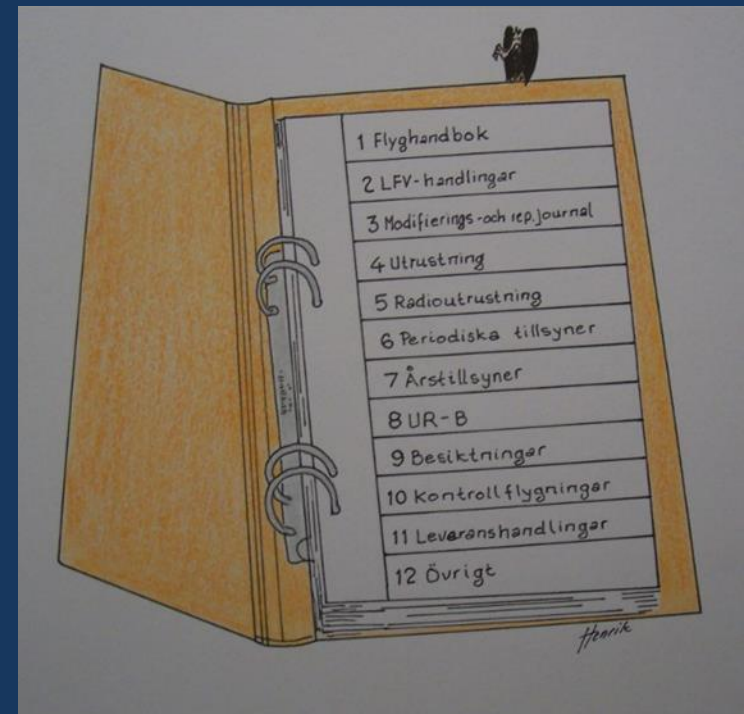 1 Flyghandbok
2 LFV-handlingar
3 Modifierings-och rep.journal
4 Utrustning
5 Radioutrustning
6 Periodiska tillsyner
7 Årstillsyner
8 UR-B
9 Besiktningar
10 Kontrollflygningar
11 Leveranshandlingar
12 Övrigt
Henrik